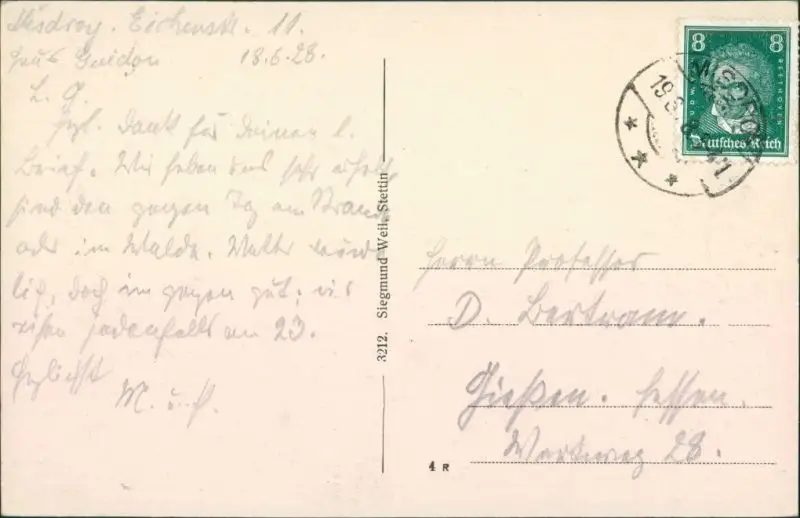 Misdroy. Eichenstr. 11.
Haus Guidon 18.6.28.
L. G.
Hzl. Dank für deinen l.
Brief. Wir haben uns sehr erholt,
sind den ganzen Tag am Strande
oder im Walde. Wetter
lich, doch im ganzen gut; wir
reisen jedenfalls am 23.
Herzlichst
M. u. P.
3212. Siegmund Weil, Stettin
4 R
8 8
LUDW. BEETHOVEN
Deutsches Reich
MISDROY
19.6.
Herrn Professor
D. Bertram.
Gießen. Hessen.
Wartweg 28.